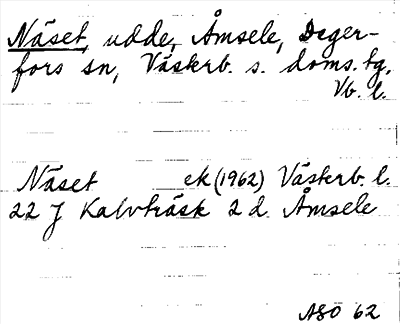 Näset, udde, Åmsele, Deger-
fors sn, Västerb. s. doms. tg,
Vb. l.
Näset ek (1962) Västerb. l.
22 J Kalvträsk 2 d. Åmsele
ASO 62